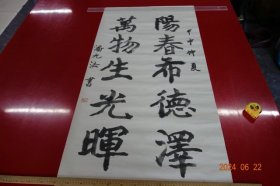 甲申仲夏
陽春布德澤
萬物生光暉
書
2024 06 22